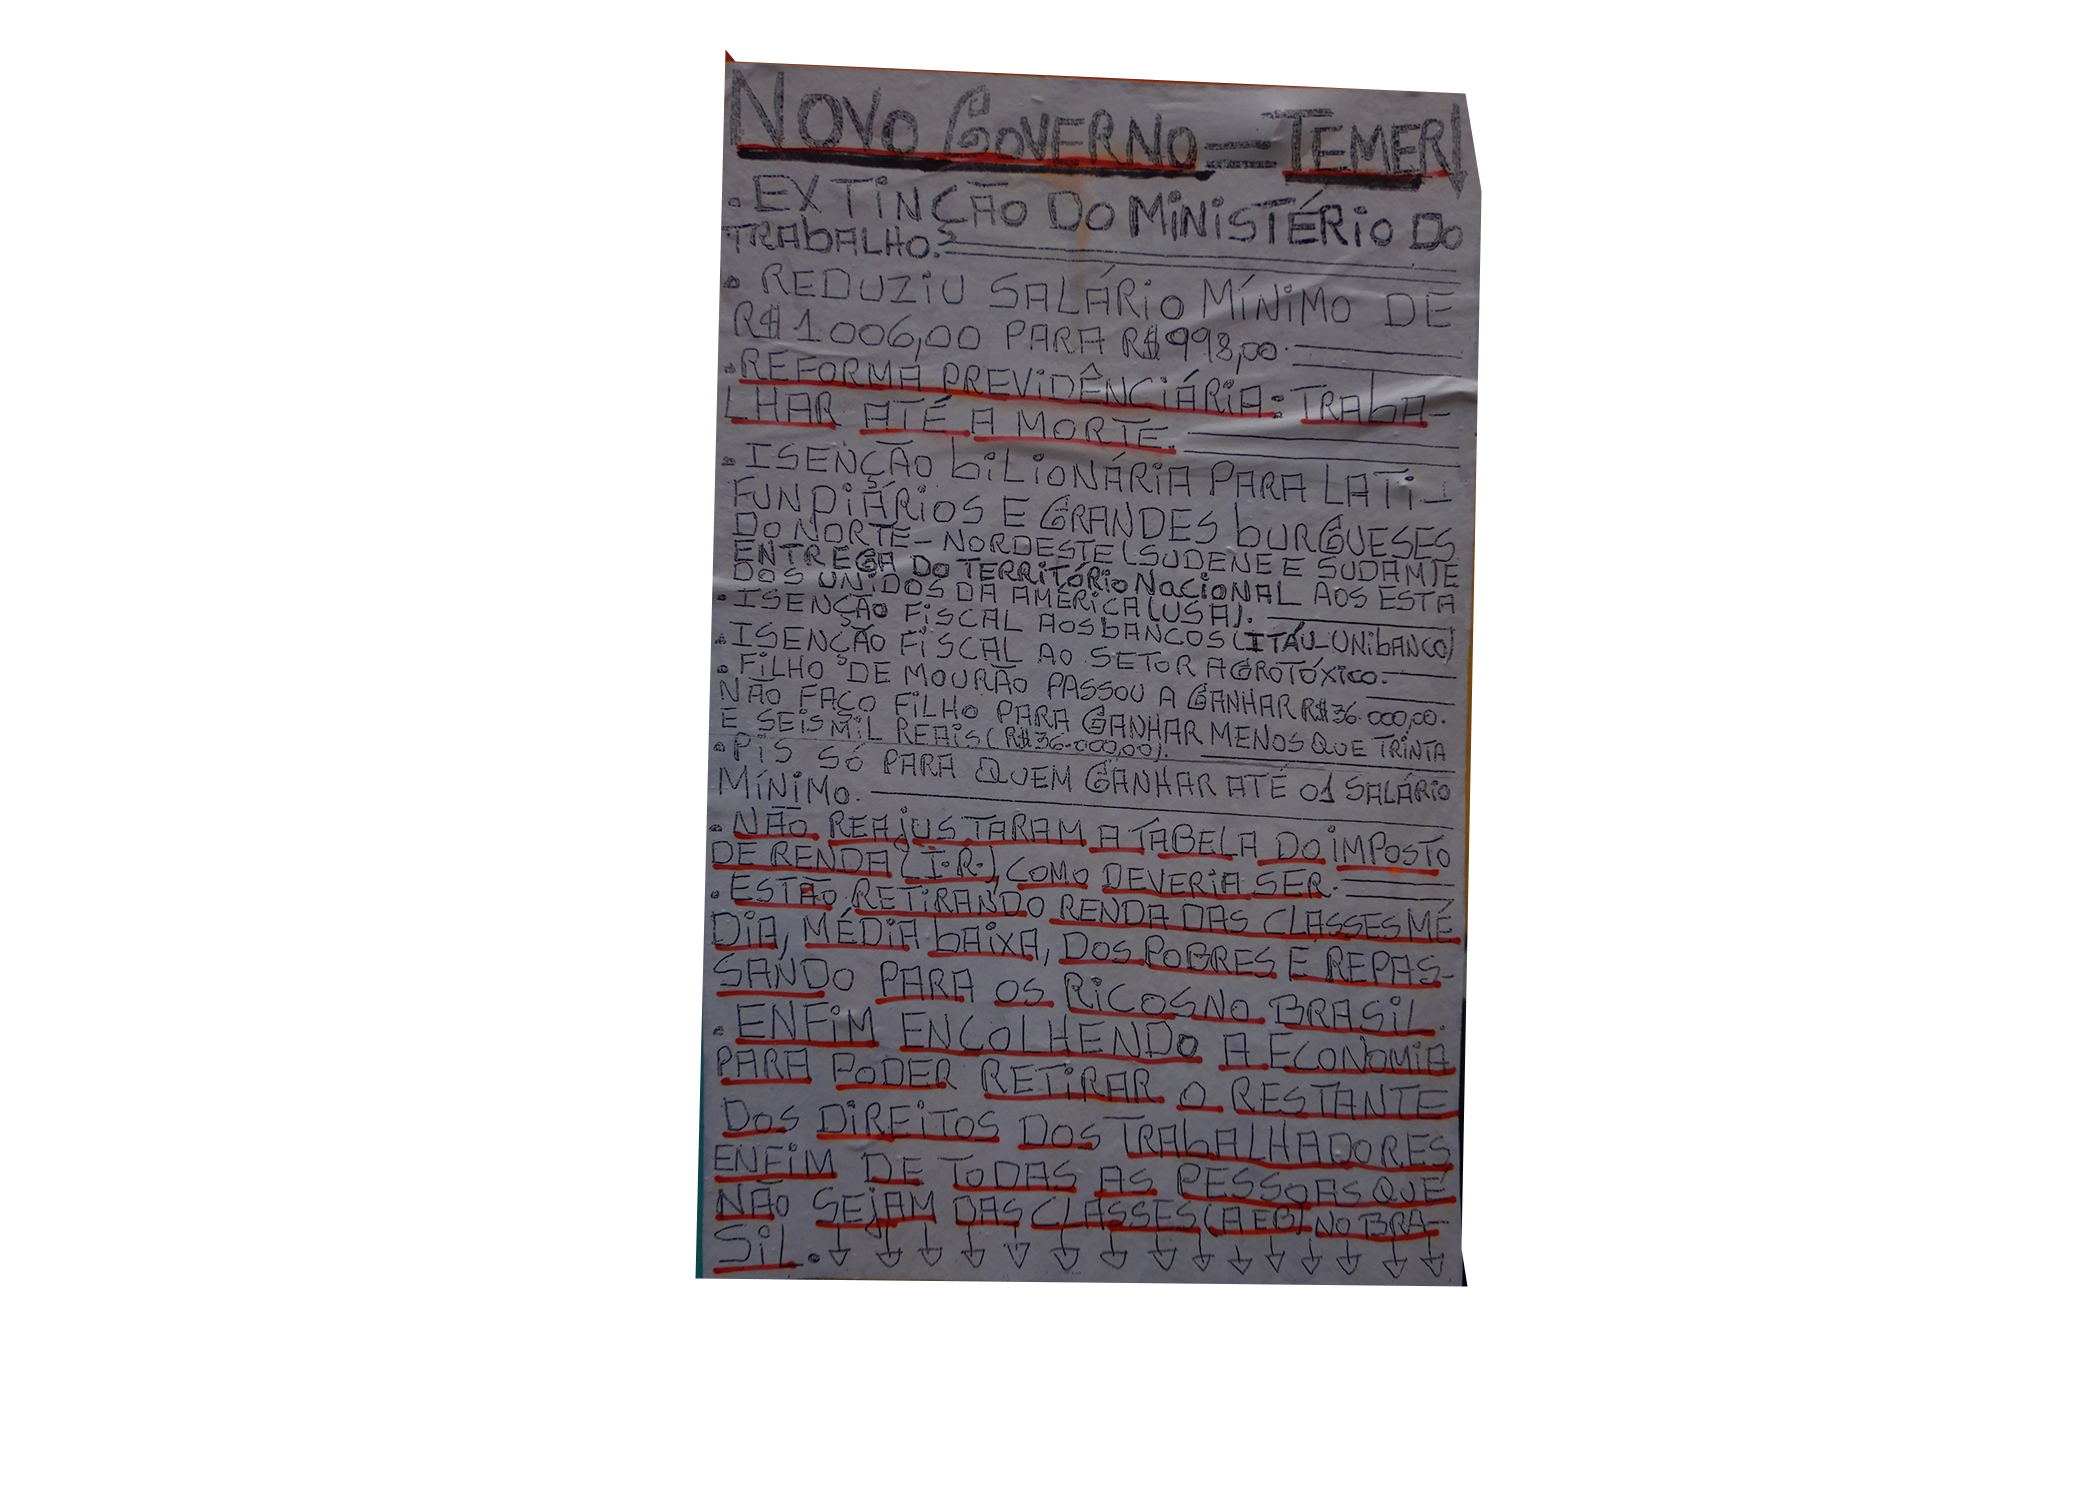 NOVO GOVERNO = TEMER!
. EXTINÇÃO DO MINISTÉRIO DO
TRABALHO.
. REDUZIU SALÁRIO MÍNIMO DE
R$ 1.006,00 PARA R$ 998,00.
. REFORMA PREVIDÊNCIÁRIA: TRABA-
LHAR ATÉ A MORTE.
. ISENÇÃO BILIONÁRIA PARA LATI-
FUNDIÁRIOS E GRANDES BURGUESES
DO NORTE-NORDESTE (SUDENE E SUDAM) E
ENTREGA DO TERRITÓRIO NACIONAL AOS ESTA
DOS UNIDOS DA AMÉRICA (USA).
. ISENÇÃO FISCAL AOS BANCOS (ITAÚ-UNIBANCO)
. ISENÇÃO FISCAL AO SETOR AGROTÓXICO.
. FILHO DE MOURÃO PASSOU A GANHAR R$ 36.000,00.
NÃO FAÇO FILHO PARA GANHAR MENOS QUE TRINTA
E SEIS MIL REAIS (R$ 36.000,00).
. PIS SÓ PARA QUEM GANHAR ATÉ 01 SALÁRIO
MÍNIMO.
. NÃO REAJUSTARAM A TABELA DO IMPOSTO
DE RENDA (I.R.), COMO DEVERIA SER.
. ESTÃO RETIRANDO RENDA DAS CLASSES MÉ
DIA, MÉDIA BAIXA, DOS POBRES E REPAS-
SANDO PARA OS RICOS NO BRASIL.
. ENFIM ENCOLHENDO A ECONOMIA
PARA PODER RETIRAR O RESTANTE
DOS DIREITOS DOS TRABALHADORES
ENFIM DE TODAS AS PESSOAS QUE
NÃO SEJAM DAS CLASSES (A E B) NO BRA-
SIL.